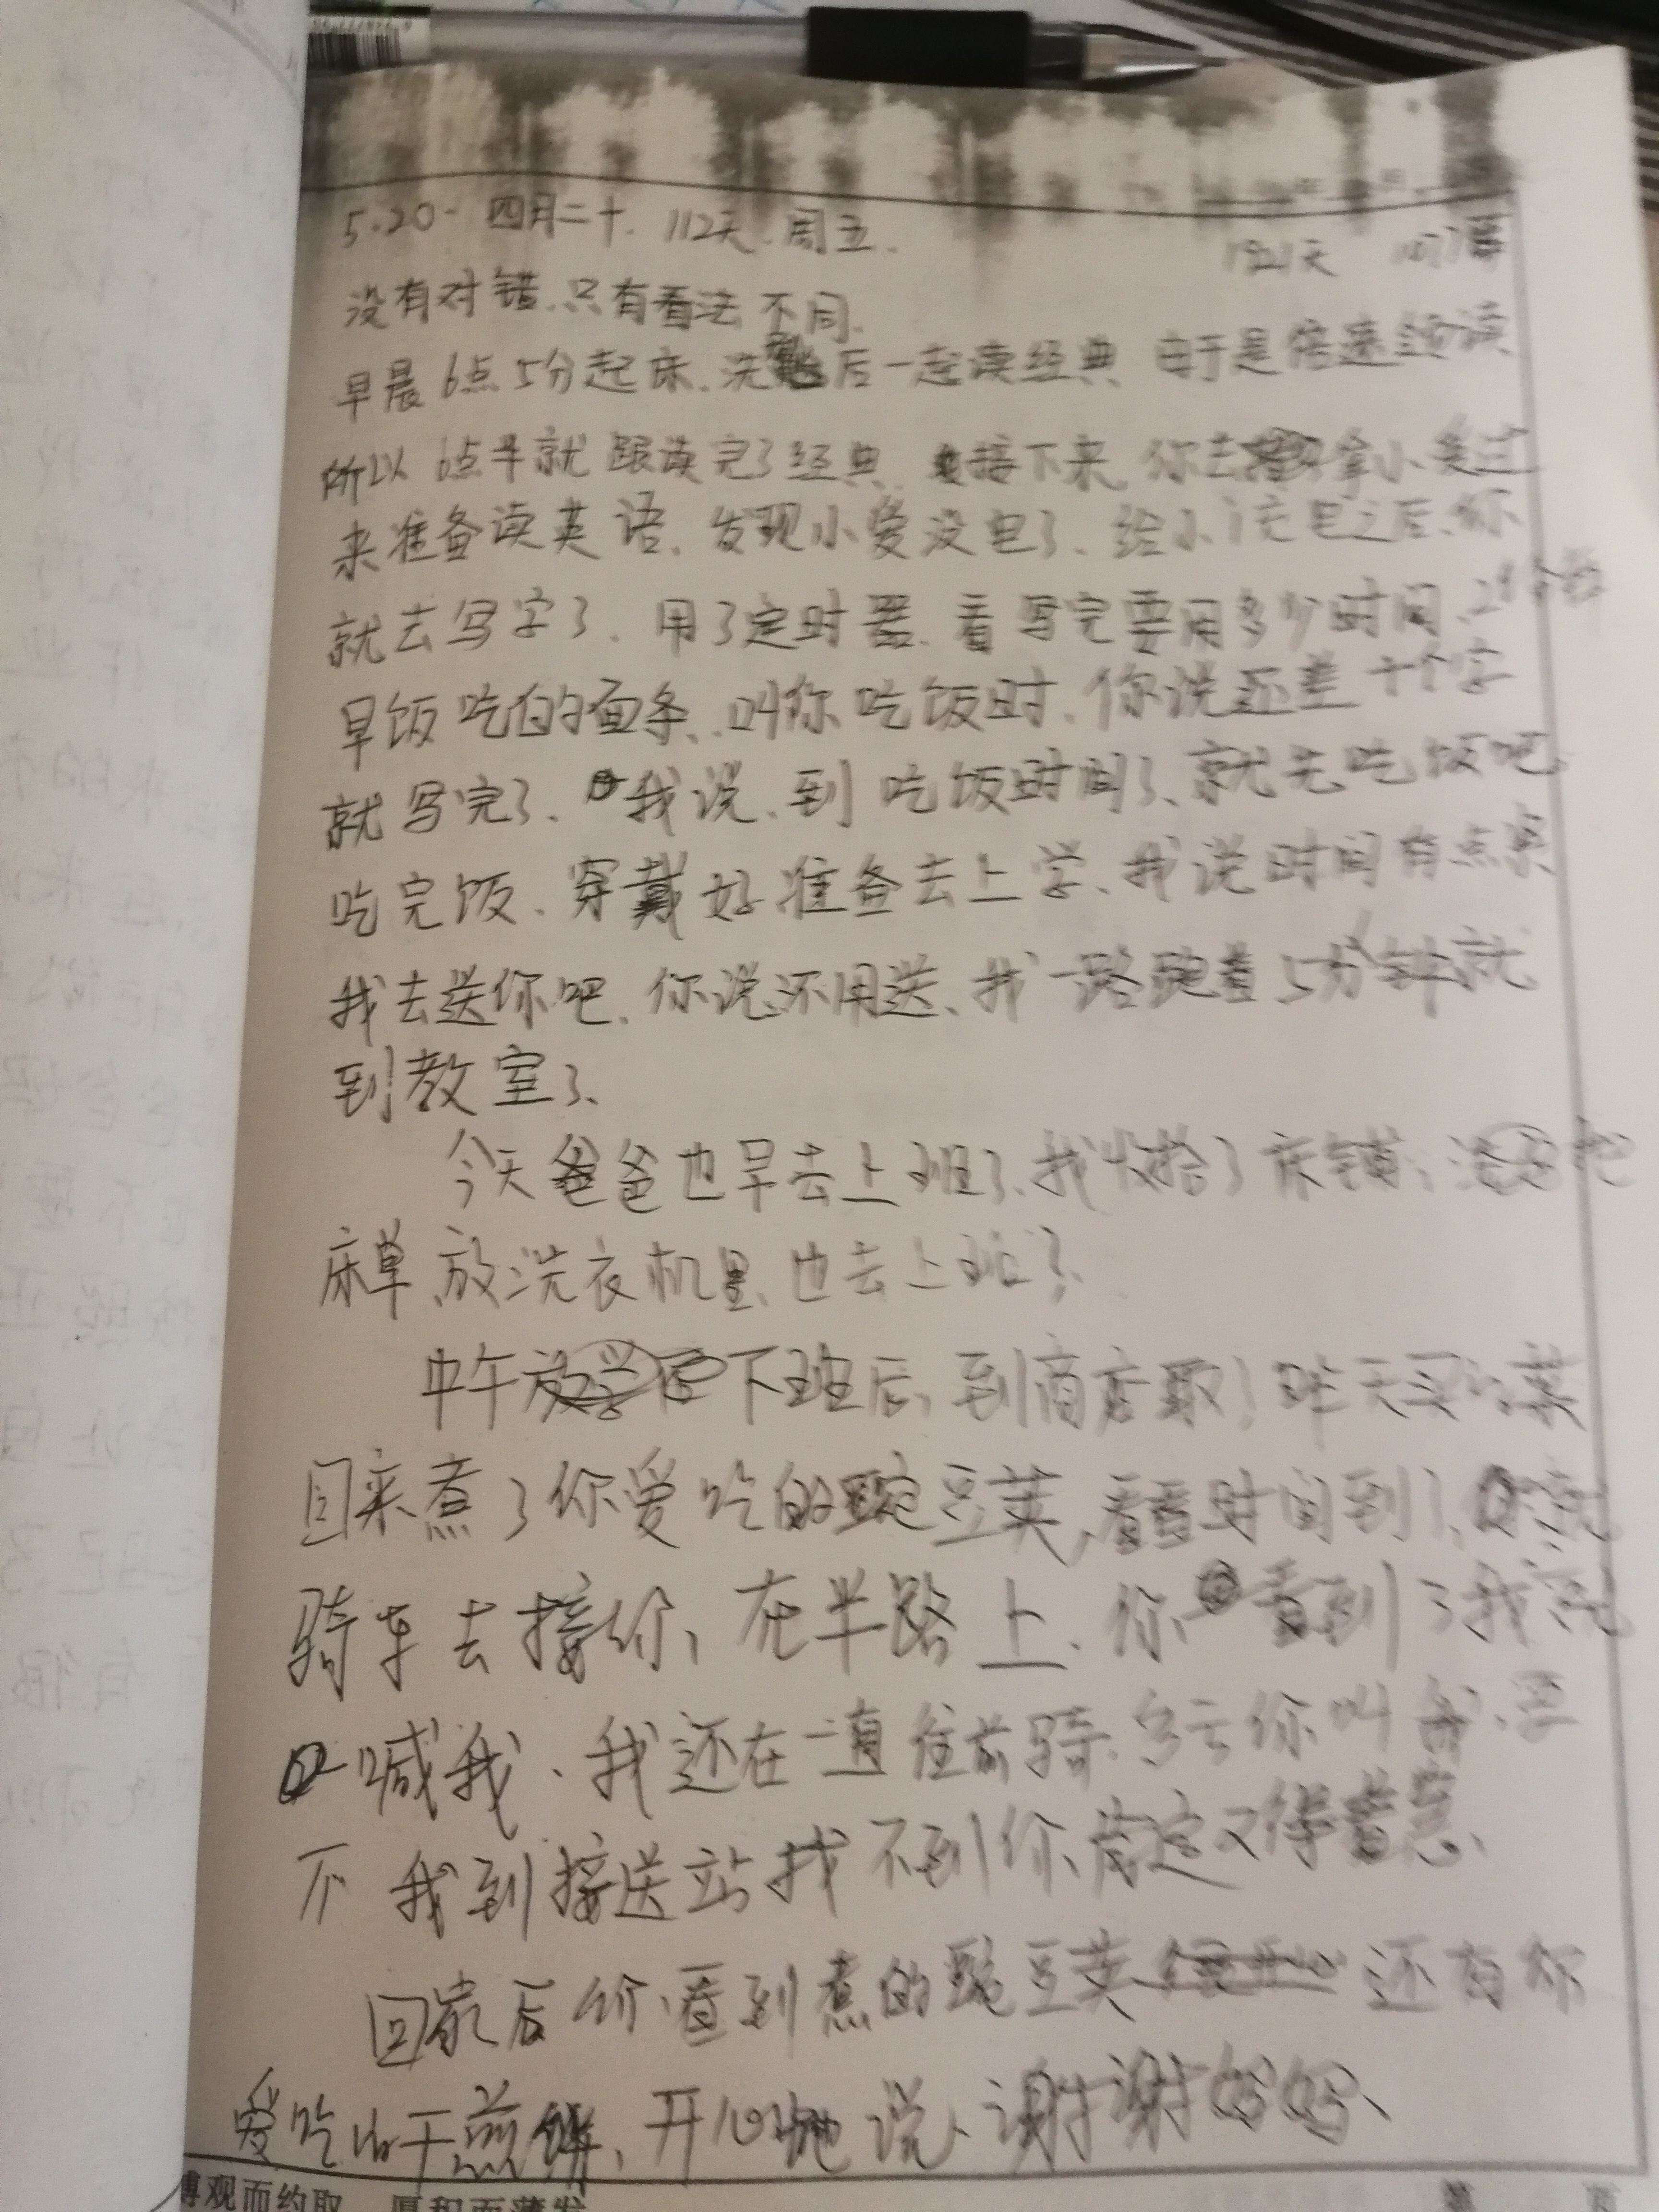 5.20. 四月二十. 112天. 周五.
1921天
没有对错.只有看法不同.
早晨6点5分起床、洗 后一起读经典 由于是倍速领读
所以6点半就跟读完了经典、接下来、你去 拿小爱过
来准备读英语、发现小爱没电了、给小门充电之后、你
就去写字了、用了定时器、看写完要用多少时间、
早饭吃的面条、叫你吃饭时、你说还差十个字
就写完了、我说、到吃饭时间了、就先吃饭吧、
吃完饭、穿戴好准备去上学、我说时间有点紧
我去送你吧、你说不用送、我一路跑着5分钟就
到教室了、
今天爸爸也早去上班了、我收拾了床铺、 把
床单放洗衣机里、也去上班了、
中午 下班后、到商店取了昨天买的菜
回来煮了你爱吃的豌豆荚、看看时间到了、 就
骑车去接你、在半路上、你看到了我就
喊我、我还在一直往前骑、多亏你叫我、要
不我到接送站找不到你、肯定又得着急、
回家后你看到煮的豌豆荚 还有你
爱吃的干煎饼、开心地说、谢谢妈妈、
博观而约取 厚积而薄发
第 页